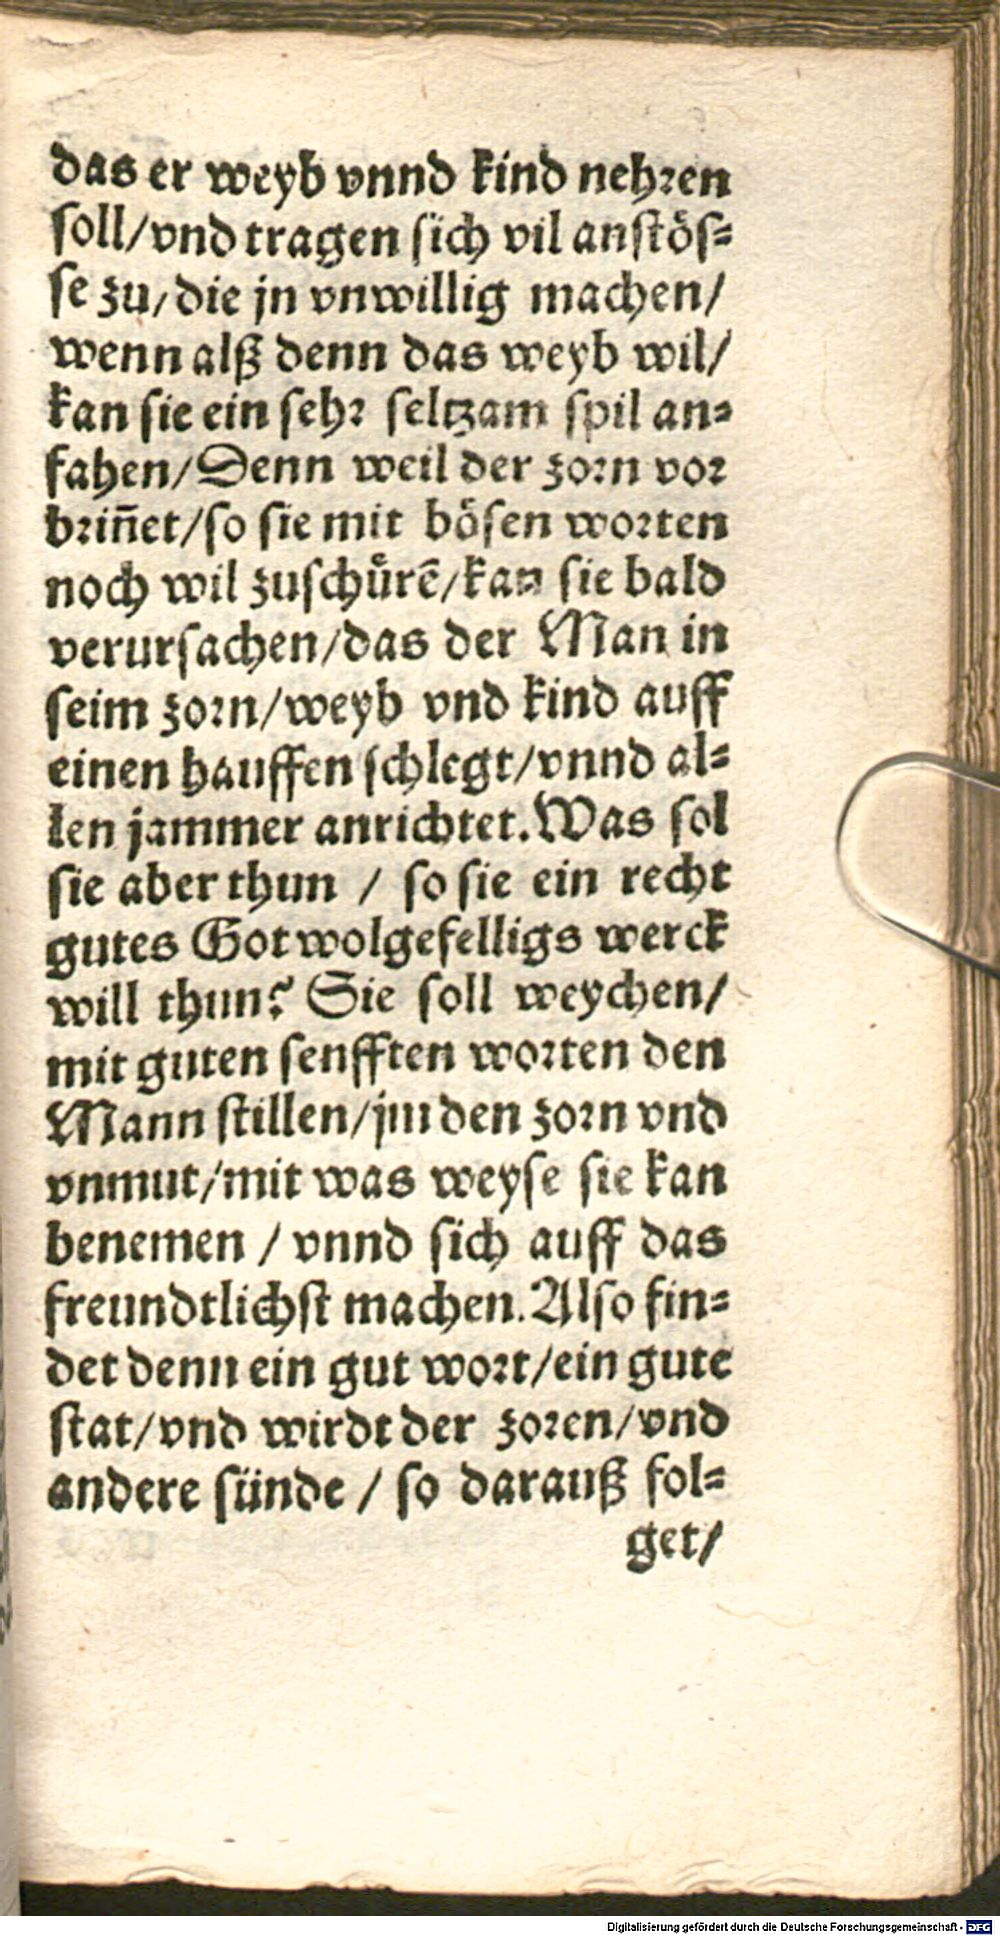 das er weyb vnnd kind nehren
soll/vnd tragen sich vil anstös-
se zu/die jn vnwillig machen/
wenn alß denn das weyb wil/
kan sie ein sehr seltzam spil an-
fahen/Denn weil der zorn vor
briñet/so sie mit bösen worten
noch wil zuschürẽ/kan sie bald
verursachen/das der Man in
seim zorn/weyb vnd kind auff
einen hauffen schlegt/vnnd al-
len jammer anrichtet. Was sol
sie aber thun / so sie ein recht
gutes Got wolgefelligs werck
will thun? Sie soll weychen/
mit guten senfften worten den
Mann stillen/jm den zorn vnd
vnmut/mit was weyse sie kan
benemen / vnnd sich auff das
freundtlichst machen. Also fin-
det denn ein gut wort/ein gute
stat/vnd wirdt der zoren/vnd
andere sünde / so darauß fol-
get/
Digitalisierung gefördert durch die Deutsche Forschungsgemeinschaft - DFG